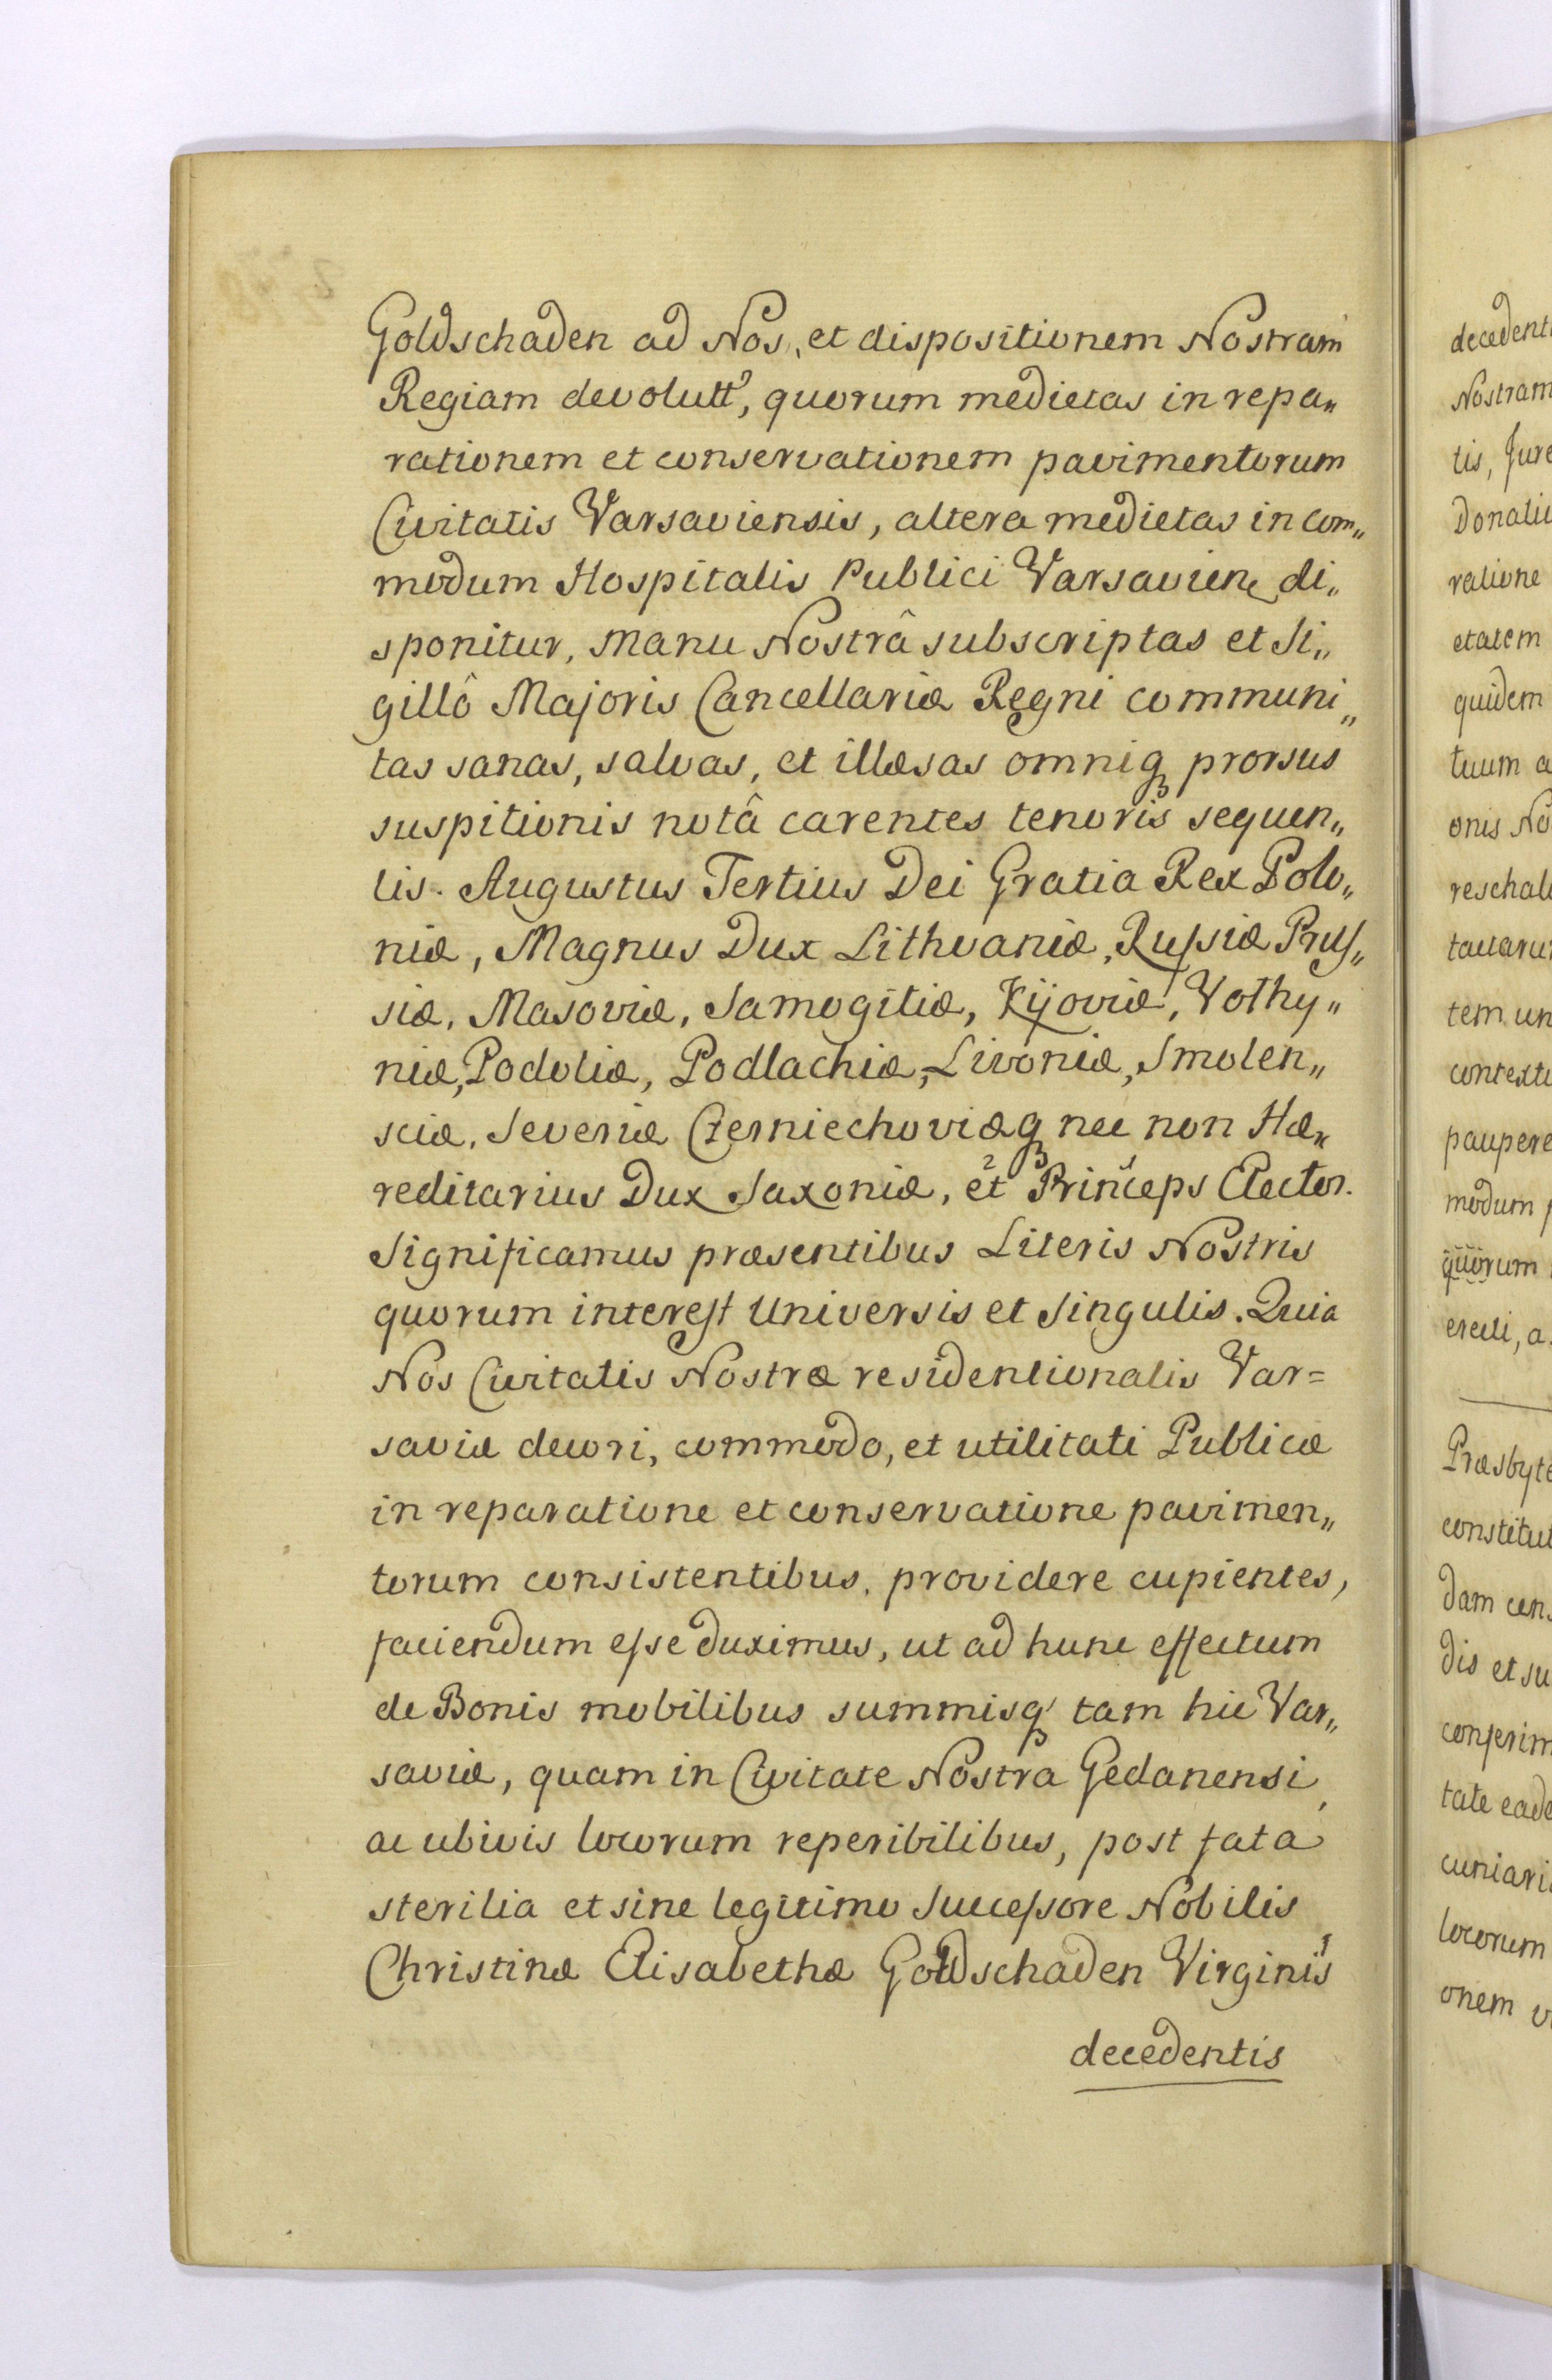 Goldschaden ad Nos, et dispositionem Nostram
Regiam devolutt, quorum medietas in repa„
rationem et conservationem pavimentorum
Civitatis Varsaviensis, altera medietas in com„
modum Hospitalis Publici Varsavien di„
sponitur, Manu Nostrâ subscriptas et Si„
gillô Majoris Cancellariæ Regni communi„
tas sanas, salvas, et illæsas omniq prorsus
suspitionis notâ carentes tenoris sequen„
tis. Augustus Tertius Dei Gratia Rex Polo„
niæ, Magnus Dux Lithvaniæ, Ruſsiæ Pruſ„
siæ, Masoviæ, Samogitiæ, Kijoviæ, Volhy„
niæ, Podoliæ, Podlachiæ, Livoniæ, Smolen„
sciæ, Severiæ Czerniechoviæq nec non Hæ„
reditarius Dux Saxoniæ, et Princeps Elector.
Significamus præsentibus Literis Nostris
quorum intereſt Universis et Singulis. Quia
Nos Civitatis Nostræ residentionalis Var=
saviæ decori, commodo, et utilitati Publicæ
in reparatione et conservatione pavimen„
torum consistentibus, providere cupientes,
faciendum eſse duximus, ut ad hunc effectum
de Bonis mobilibus summisq tam hic Var„
saviæ, quam in Civitate Nostra Gedanensi,
ac ubivis locorum reperibilibus, post fata
sterilia et sine legitimo Succeſsore Nobilis
Christinæ Elisabethæ Goldschaden Virginis
decedentis
decedent
Nostram
tis, Jure
Donati
ratione
etatem
quidem
tuum a
onis No
reschal
tactaru
tem un
contextu
paupere
modum
quorum
erecti, a
Præsbyte
constitut
dam cen
dis et su
conferim
tate eade
cuniari
locorum
onem v